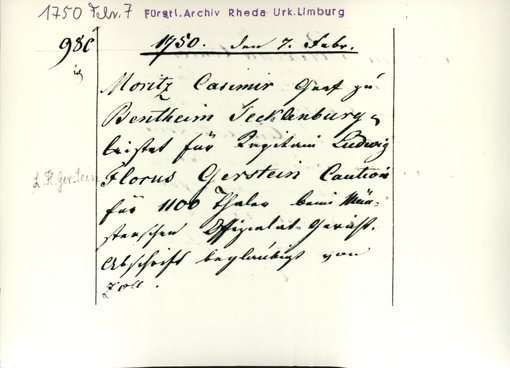 1750 Febr. 7 Fürstl. Archiv Rheda Urk. Limburg
1750. den 7. Febr.
Moritz Casimir Graf zu
Bentheim Tecklenburg
leistet für Capitain Ludwig
Florus Gerstein Caution
für 1100 Thaler beim Mün-
sterschen Offizialat-Gericht.
Abschrift beglaubigt von
Zoll.